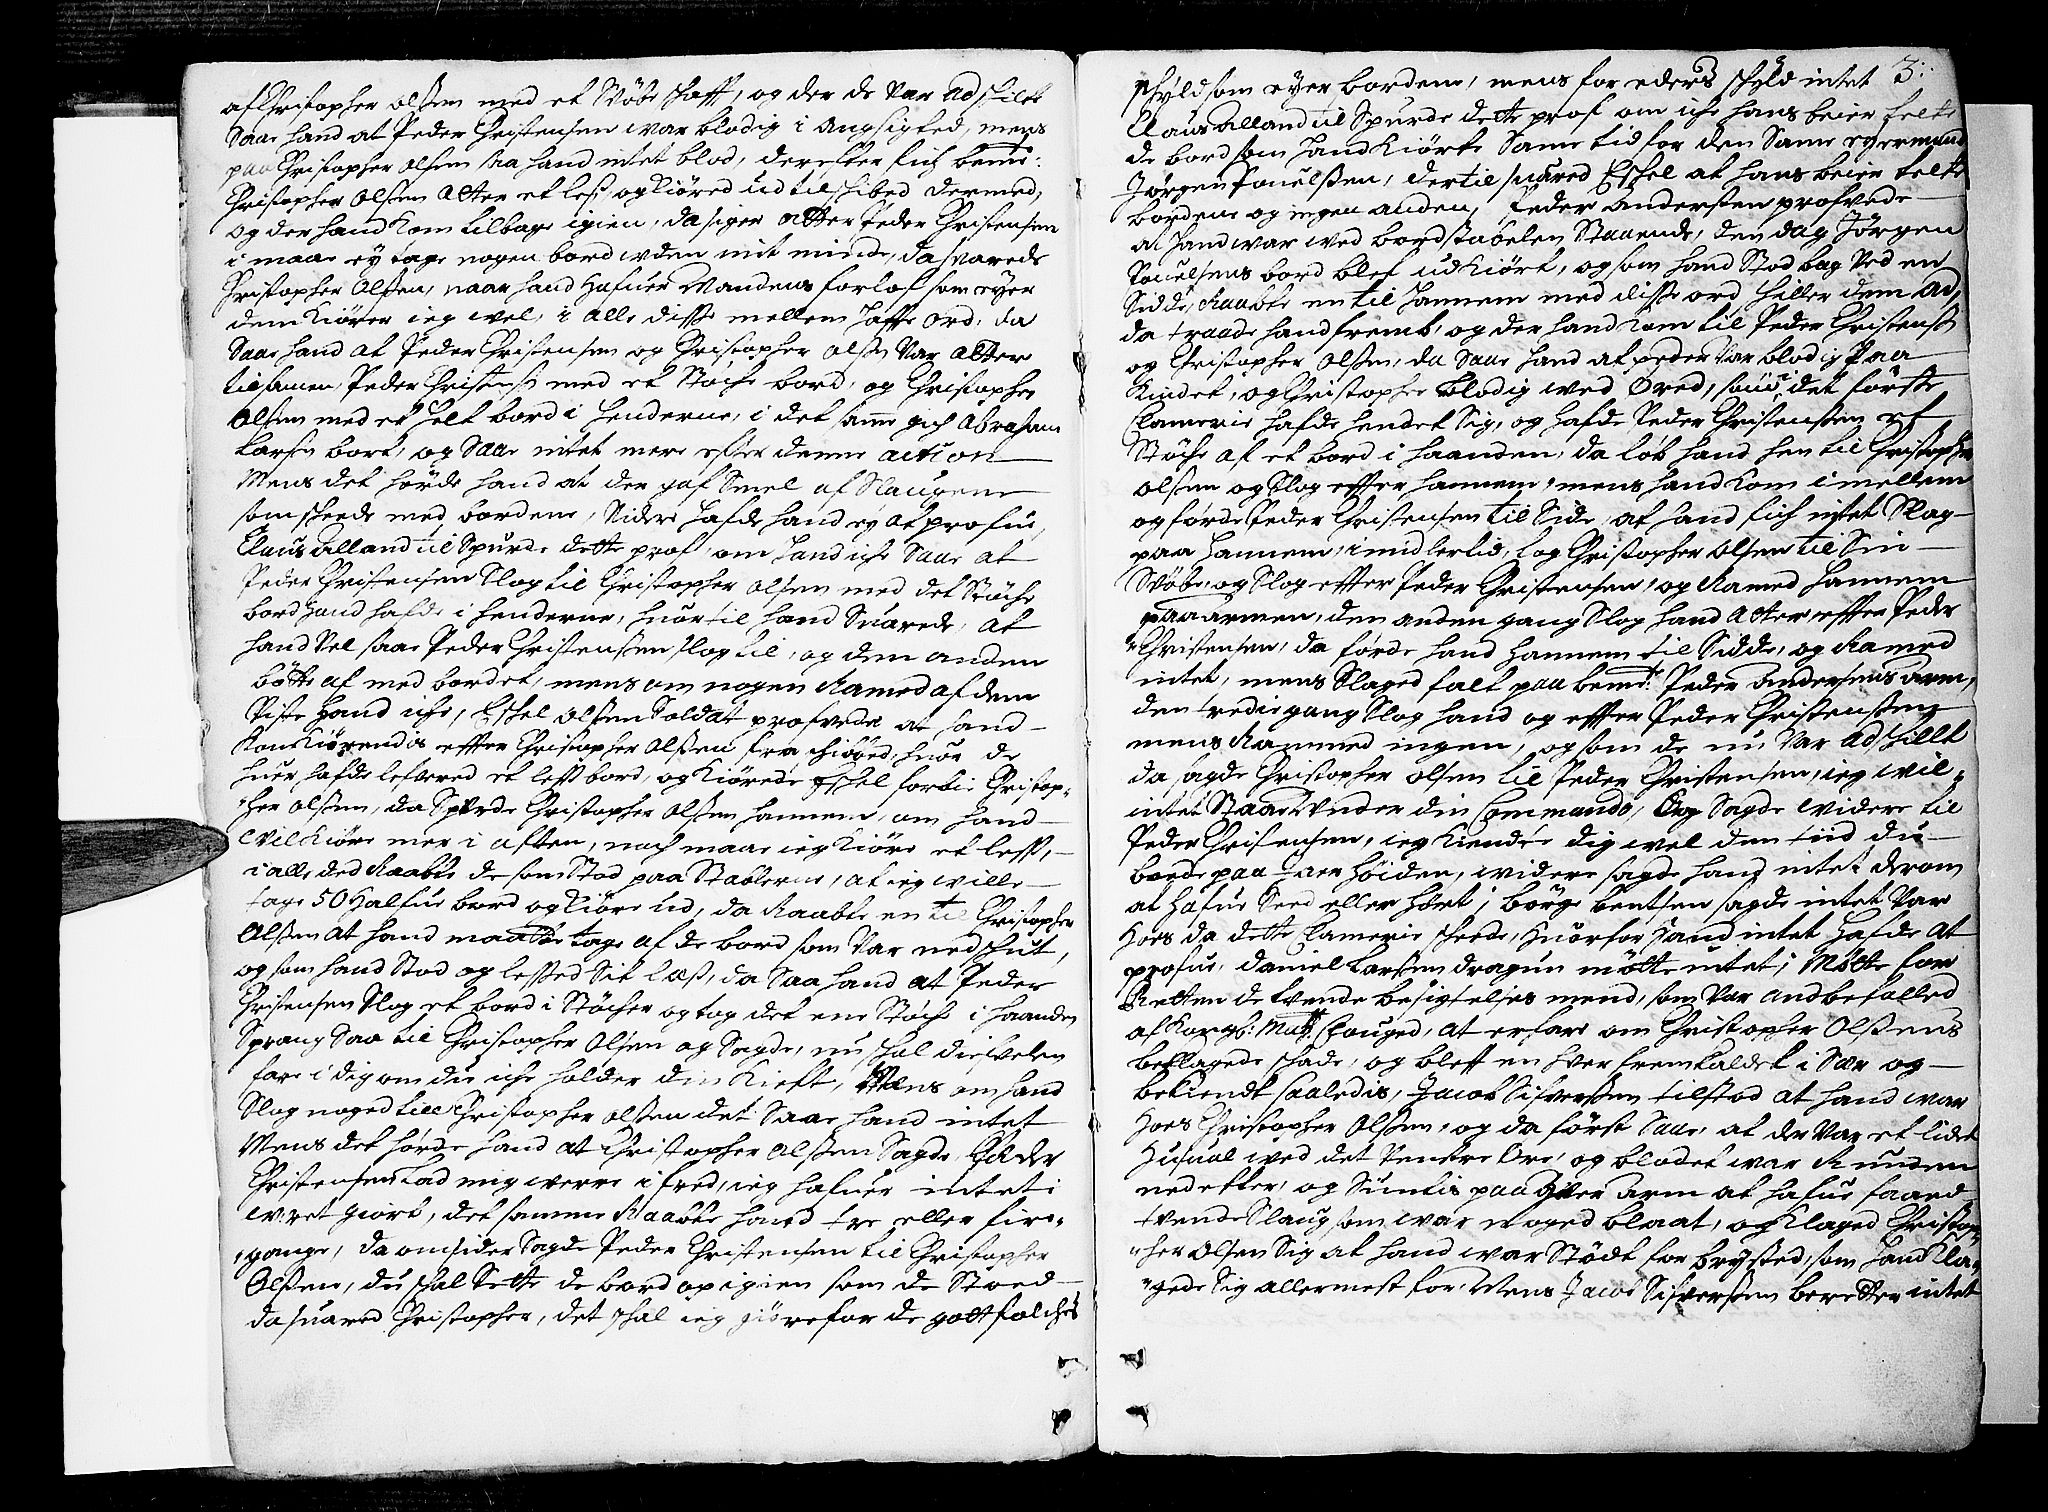 af Christopher Olßen med et Svøbe skafft, og der de var adskilt
Saae hand at Peder Christensen war blodig i Angsigted, mens
paa Christopher Olsen saa hand intet blod, derefter fich bemte:
Christopher Olsen atter et les og kiøred ud til skibed dermed,
og der hand kom tilbage igien, da siger atter Peder Christensen
i maae ey tage nogen bord uden mit minde, da svarede
Christopher Olßen, naar hand hafuer Mandens forlof som eyer
dem kiører ieg wel, i alle disse mellem haffte ord, da
Saae hand at Peder Christensen og Christopher Olsen var atter
tilsamen, Peder Christens: med et Støche bord, og Christopher
Olsen med et helt bord i henderne, i det same gich Abraham
Larsen bort, og Saae intet mere efter denne action
Mens det hørde hand at der gaf Smel af Slaugene
som skeede med bordene, Videre hafde hand ey at profue,
Claus Alland til Spurde dette prof, om hand iche Saae at
Peder Christensen Slog til Christopher Olsen med det Støche
bord hand hafde i henderne, huortil hand Suarede, at
hand Vel saae Peder Christensen slog til, og den anden
bøtte af med bordet, mens om nogen Ramed af dem
Viste hand iche, Eschel Olßen Soldat profvede at hand
kom kiørendis effter Christopher Olßen fra schiøed, huor de
huer hafde lefvered et less bord, og kiørede Eschel forbie Christop-
"her Olßen, da Spurde Christopher Olßen hannem, om hand
Vil kiøre mer i aften, noch maae ieg kiøre et less,
i alle ded Raabte de som Stod paa Stablerne, at ieg wille
tage 50 Halfue bord og kiøre ud, da Raabte en til Christopher
Olßen at hand maatte tage af de bord som var nedschut,
og som hand Stod og lessed Sit Læs, da Saa hand at Peder
Christensen Slog et bord i Støcher og tog det ene Støche i haanden
Sprang Saa til Christopher Olsen og Sagde, nu skal dievelen
fare i dig om du iche holder din Kieft, Mens om hand
Slog noged till Christopher Olßen det Saae hand intet
Mens det hørde hand at Christopher Olßen Sagde, Peder
Christensen Lad mig werre i fred, ieg hafuer intet i
wret giort, det samme Raabte hand tre eller fire
"gange, da omsider Sagde Peder Christensen til Christopher
Olßen, du skal Sette de bord op igien som de Stoed
da suared Christopher, det skal ieg giøre for de gott folches
3:
skyld som eyer bordene, mens for eders skyld intet
Claus Alland til Spurde dette prof om iche hans beier felte
de bord som hand kiørte Same tid for den Same eyermand
Jørgen Pouelßen, dertil suared Eschel at hans beier felte
bordene og ingen anden, Peder Anderßen profvede
at hand war wed bordstabelen Staaende, den dag Jørgen
Pouelsens bord blef udkiørt, og som hand Stod bag Ved en
Sidde, Raabte en til hannem med disse ord Skiller dem ad,
da traade hand fremb, og der hand kom til Peder Christens:
og Christopher Olßen, da Saae hand at Peder var blodig paa
Kindet, og Christopher blodig wed Øred, det første
Clamerie hafde hendet Sig, og hafde Peder Christenßen et
Støche af et bord i haanden, da løb hand hen til Christopher
Olßen og Slog effter hannem, mens hand kom i mellem
og førde Peder Christensen til Side, at hand fich intet Slag
paa hannem, imidlertid, tog Christopher Olsen til Sin
Svøbe, og Slog effter Peder Christensen, og Ramed hannem
paa armen, den anden gang Slog hand atter effter Peder
"Christensen, da førde hand hannem til Sidde, og Ramed
intet, mens Slaged falt paa bemte: Peder Andersens arm,
den tredie gang Slog hand og effter Peder Christenßen
mens Rammed ingen, og som de nu var adskillt
da sagde Christopher Olsen til Peder Christensen, ieg wil
intet Staae under din Commando, Og Sagde widere til
Peder Christensen, ieg Kiendte dig wel den tiid du
boede paa høiden, widere sagde hand intet derom
at hafue Seed eller hørt; Børge bentsen sagde intet var
hoes da dette Clamerie skeede, huorfor hand intet hafde at
profue, Daniel Larßen dragun møtte intet; Møtte for
Retten de tvende besigtelses mend, som var andbefalled
af Kongl: Mayts: fouged, at erfare om Christopher Olßens
beklagede skade, og bleff en hver fremkaldet i Sær og
bekiendt saaledis, Jacob Sifverßen tilstod at hand war
hoes Christopher Olßen, og da først Saae, at der var et lidet
Hul wed det Venstre Øre, og blodet war Runden
ned etter, og Suntis paa huer Arm at hafue faaed
tvende Slaug som war noged blaat, og Klaged Christop-
"her Olsen Sig at hand war Stødt for brysted, som hand kla-
"gede Sig allermest for. Mens Jacob Sifverßen beretter intet